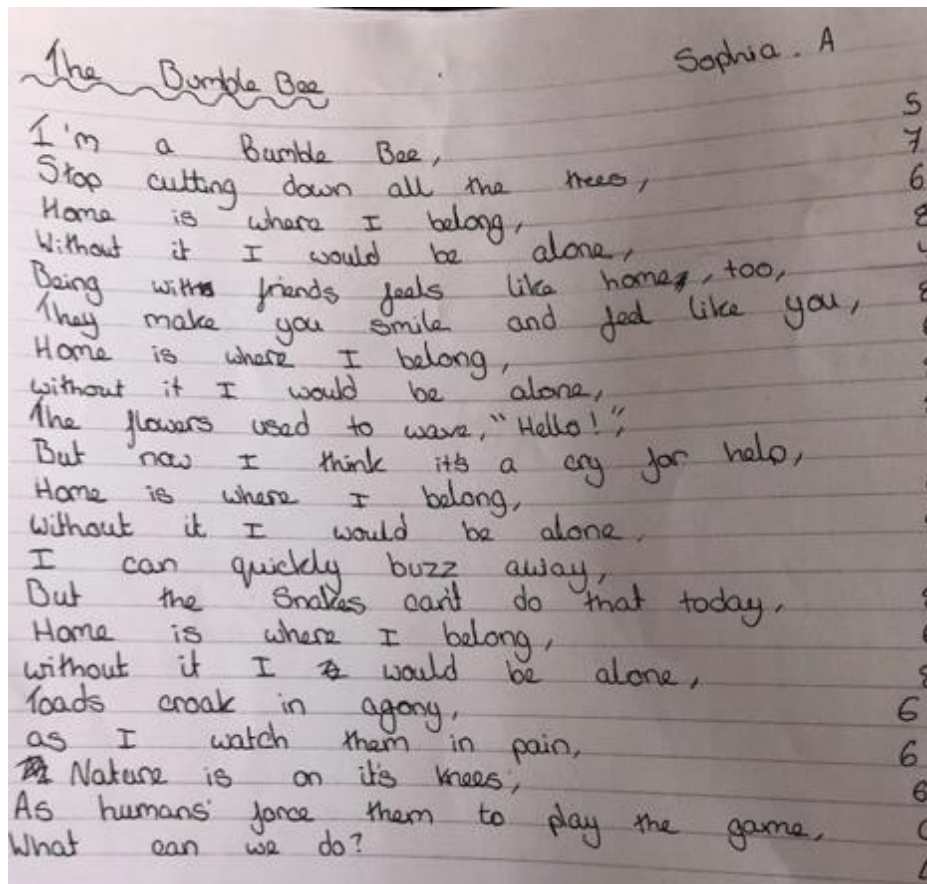 The Bumble Bee Sophia . A
5
I'm a Bumble Bee, 7
Stop cutting down all the trees, 6
Home is where I belong, 8
Without it I would be alone,
Being with friends feels like home, too,
They make you smile and feel like you,
Home is where I belong,
without it I would be alone,
The flowers used to wave, "Hello!",
But now I think it's a cry for help,
Home is where I belong,
without it I would be alone.
I can quickly buzz away,
But the Snakes can't do that today,
Home is where I belong,
without it I would be alone,
Toads croak in agony, 6
as I watch them in pain, 6
Nature is on it's knees, 6
As humans' force them to play the game,
What can we do?